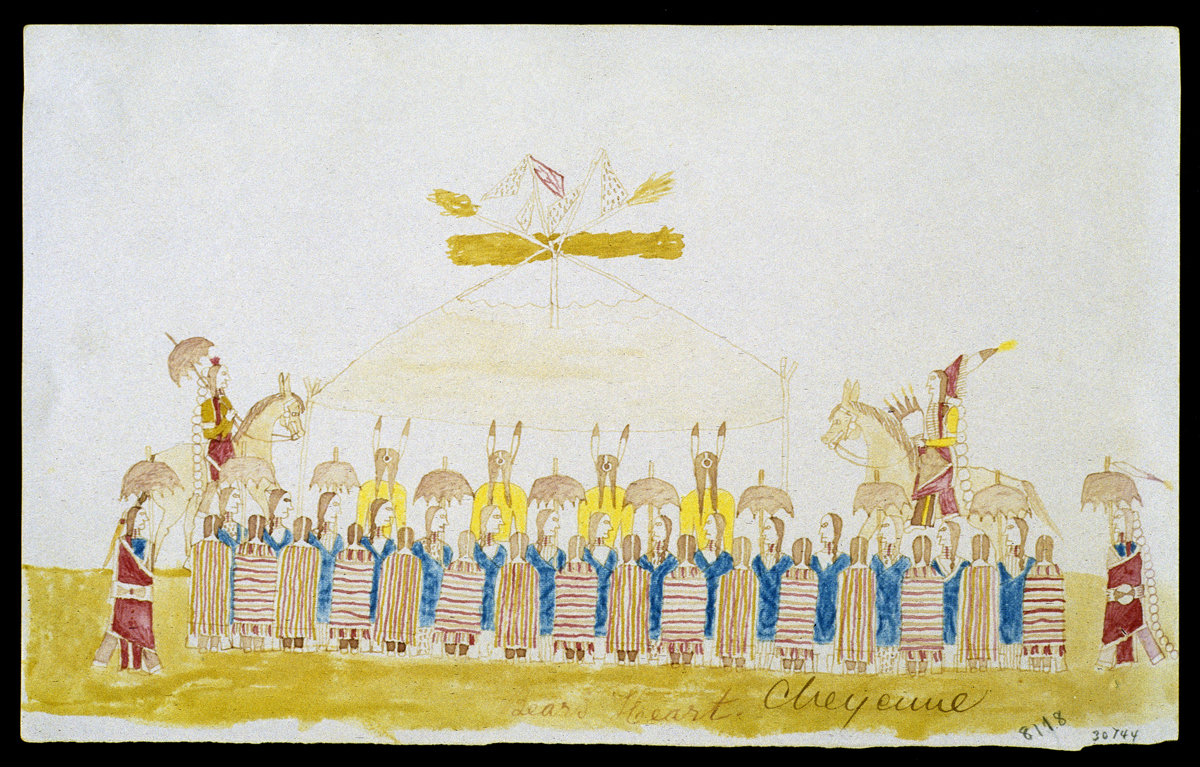 Bears Heart. Cheyenne
8118
30744